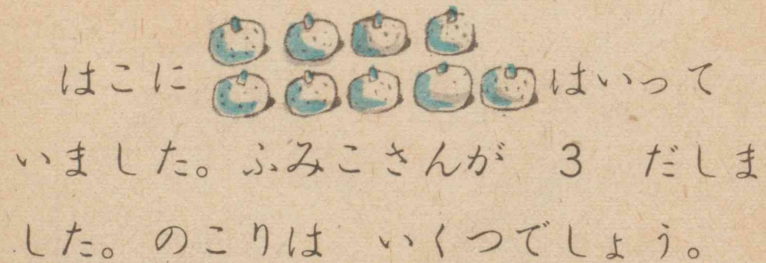 はこに はいって
いました。ふみこさんが 3 だしま
した。のこりは いくつでしょう。